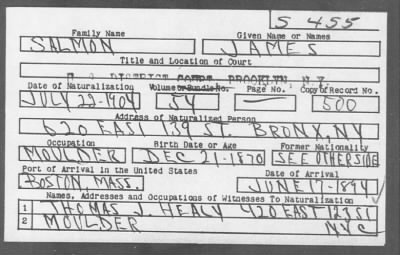 S 455
Family Name Given Name or Names
SALMON JAMES
Title and Location of Court
U. S. DISTRICT COURT BROOKLYN, N.Y.
Date of Naturalization Volume or Bundle No. Page No. Copy of Record No.
JULY 22-1904 54 — 500
Address of Naturalized Person
620 EAST 139 ST. BRONX, NY
Occupation Birth Date or Age Former Nationality
MOULDER DEC 21-1870 SEE OTHERSIDE
Port of Arrival in the United States Date of Arrival
BOSTON MASS. JUNE 17-1894
Names, Addresses and Occupations of Witnesses To Naturalization
1 THOMAS J. HEALY 420 EAST 123 ST
2 MOULDER NYC